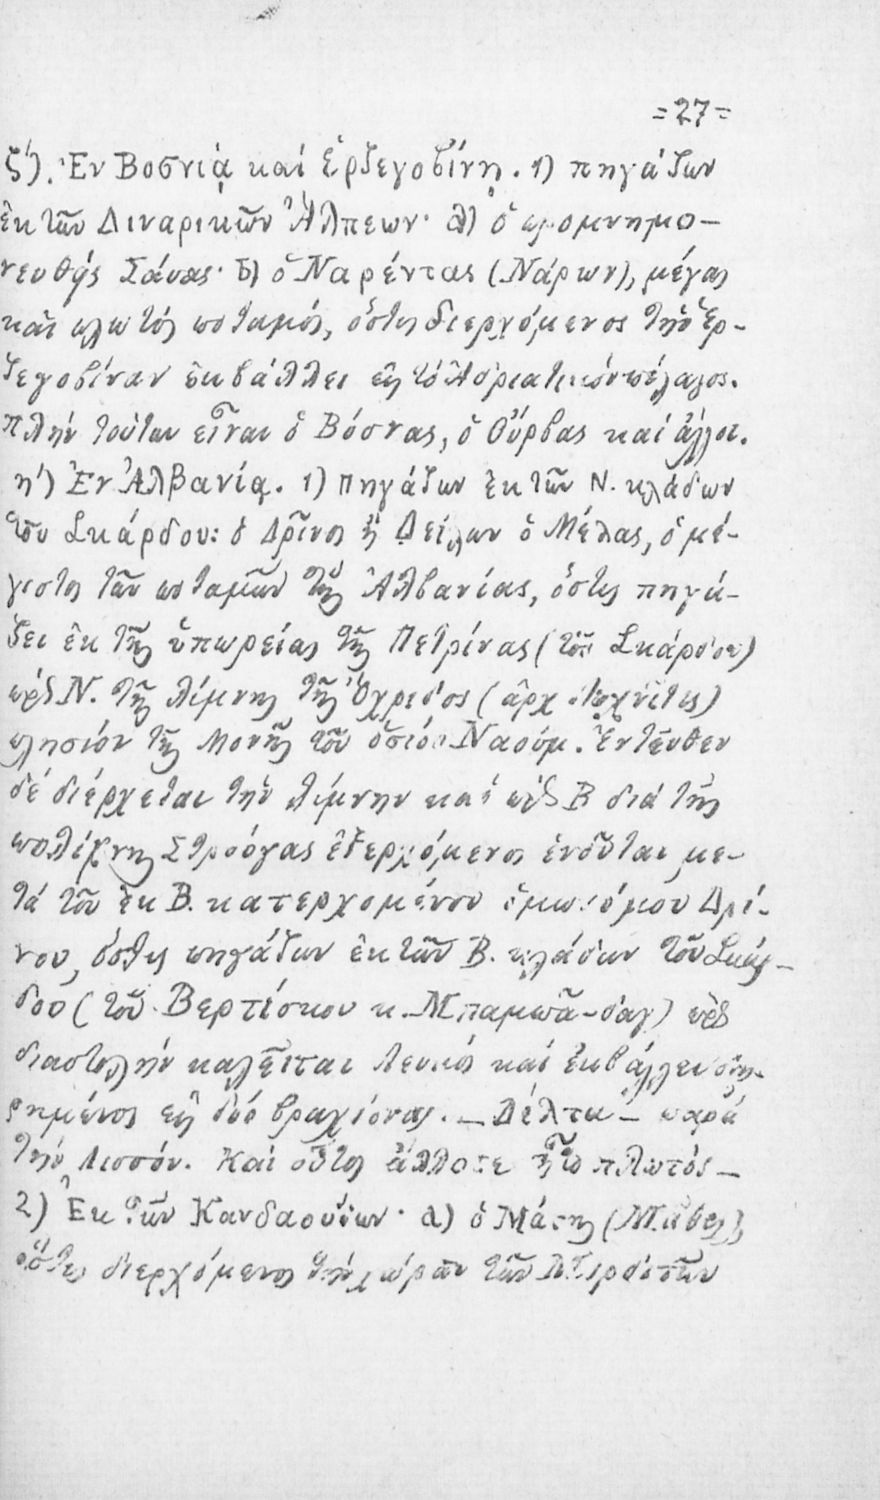 =27=
ζ'). Ἐν Βοσνίᾳ καί Ἑρζεγοβίνῃ. 1) πηγάζων
ἐκ τῶν Διναρικῶν Ἄλπεων· α) ὁ προμνημο-
νευθείς Σάυας· β) ὁ Ναρέντας (Νάρων), μέγας
καί πλωτός ποταμός, ὅστις διερχόμενος τήν Ἑρ-
ζεγοβίναν ἐκβάλλει εἰς τό Ἀδριατικόν πέλαγος.
Πλήν τούτων εἶναι ὁ Βόσνας, ὁ Οὔρβας καί ἄλλοι.
η') Ἐν Ἀλβανίᾳ. 1) Πηγάζων ἐκ τῶν Ν. κλάδων
τοῦ Σκάρδου: ὁ Δρῖνος ἤ Δείλων ὁ Μέλας, ὁ μέ-
γιστος τῶν ποταμῶν τῆς Ἀλβανίας, ὅστις πηγά-
ζει ἐκ τῆς ὑπωρείας τῆς Πετρίνας (τοῦ Σκάρδου)
πρός Ν. τῆς λίμνης τῆς Ὀχρίδος (ἀρχ. Λυχνῖτις)
πλησίον τῆς Μονῆς τοῦ ὁσίου Ναούμ. Ἐντεῦθεν
δέ διέρχεται τήν λίμνην καί πρός Β διά τῆς
πολίχνης Στρούγας ἐξερχόμενος ἑνοῦται με-
τά τοῦ ἐκ Β. κατερχομένου ὁμωνύμου Δρί-
νου, ὅστις πηγάζων ἐκ τῶν Β. κλάδων τοῦ Σκάρ-
δου (τοῦ Βερτίσκου κ. Μπαμπᾶ-δαγ) πρός
διαστολήν καλεῖται λευκός καί ἐκβάλλει διῃ-
ρημένος εἰς δύο βραχίονας. — Δέλτα — παρά
τήν Λισσόν. Καί οὗτος ἄλλοτε ἦτο πλωτός —
2) Ἐκ τῶν Κανδαουίων· α) ὁ Μάτης
ὅστις διερχόμενος τήν χώραν τῶν Μιρδιτῶν